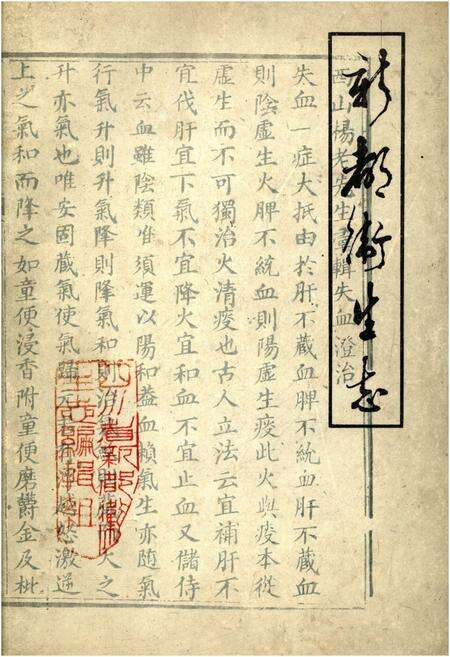 新都衛生志
西山楊老先生
輯失血澄治
失血一症大抵由於肝不藏血脾不統血肝不藏血
則陰虛生火脾不統血則陽虛生痰此火與痰本從
虛生而不可獨治火清痰也古人立法云宜補肝不
宜伐肝宜下氣不宜降火宜和血不宜止血又儲侍
中云血雖陰類皆須運以陽和蓋血賴氣生亦隨氣
行氣升則升氣降則降氣和則治火之
升亦氣也唯安固藏氣使氣歸元越悲激逆
上之氣和而降之如童便浸香附童便摩鬱金及枇